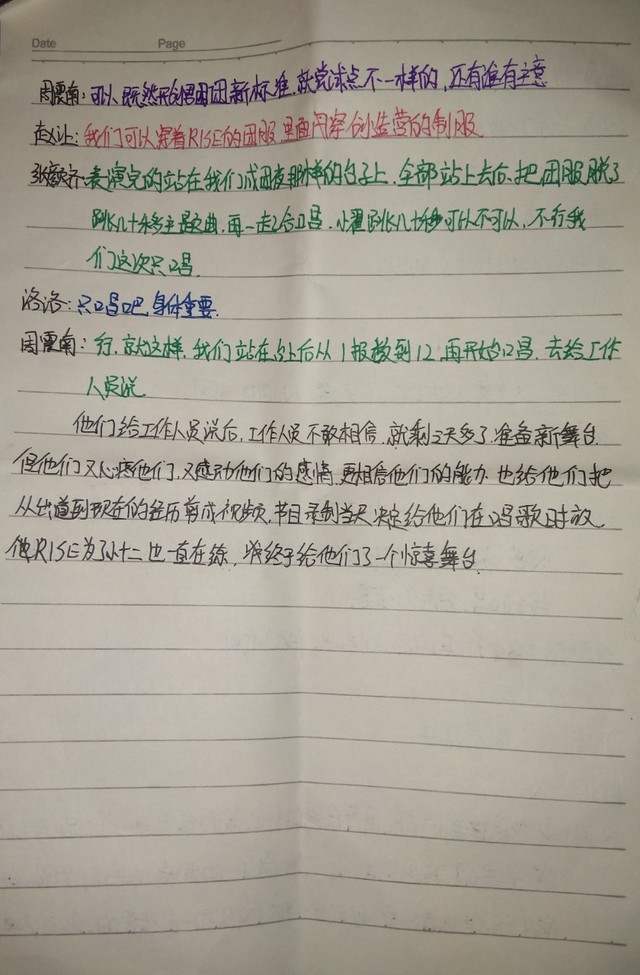 Date Page
周震南:可以,既然开创男团新标准,就尝试点不一样的,还有谁有主意
赵让:我们可以穿着RISE的团服里面闭穿创造营的制服
张颜齐:表演完的站在我们成团夜那样的台子上,全部站上去后,把团服脱了
跳几十秒主题曲,再一起合唱,小翟跳几十秒可以不可以,不行我
们这次只唱
洛洛:只唱吧,身体重要.
周震南:行,就这样,我们站在处后从1报数到12,再开始唱.去给工作
人员说
他们给工作人员说后,工作人员不敢相信,就剩3天多了,准备新舞台
但他们又心疼他们,又感动他们的感情,更相信他们的能力,也给他们把
从出道到现在的经历剪成视频,节目录制当天决定给他们在唱歌时放
他RISE为了孙十二也一直在练,将终于给他们了一个惊喜舞台